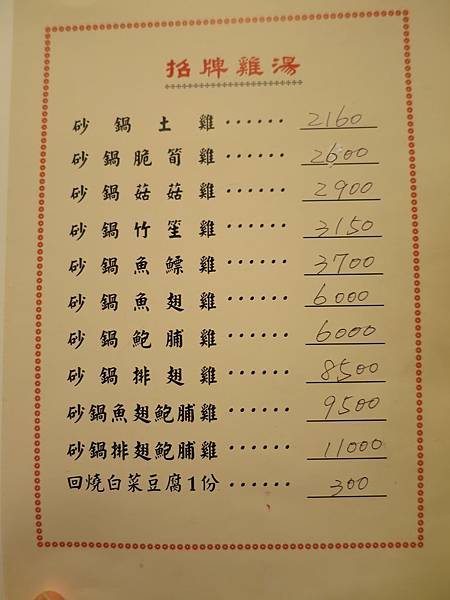 招牌雞湯
砂鍋土雞······ 2160
砂鍋脆筍雞······ 2600
砂鍋菇菇雞······ 2900
砂鍋竹笙雞······ 3150
砂鍋魚鰾雞······ 3700
砂鍋魚翅雞······ 6000
砂鍋鮑脯雞······ 6000
砂鍋排翅雞······ 8500
砂鍋魚翅鮑脯雞······ 9500
砂鍋排翅鮑脯雞······ 11000
回燒白菜豆腐1份······ 300